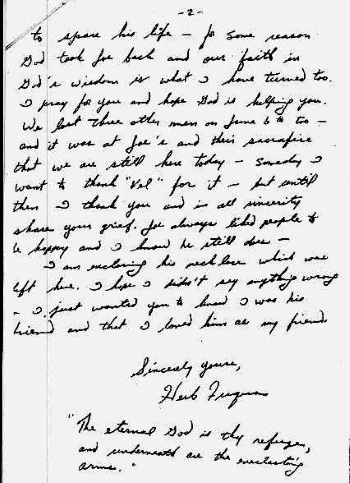 -2-
to spare his life - for some reason
God took Joe back and our faith in
God's wisdom is what I have turned too.
I pray for you and hope God is helping you.
We lost three other men on June 6th to -
and it was at Joe's and their sacrafice
that we are still here today - Someday I
want to thank "Val" for it - but until
then I thank you and in all sincerity
share your grief. Joe always liked people to
be happy and I know he still does -
I am enclosing his necklace which was
left here. I hope I didn't say anything wrong
- I just wanted you to know I was his
friend and that I loved him as my friend
Sincerely yours,
Herb
"The eternal God is thy refuge,
and underneath are the everlasting
arms."